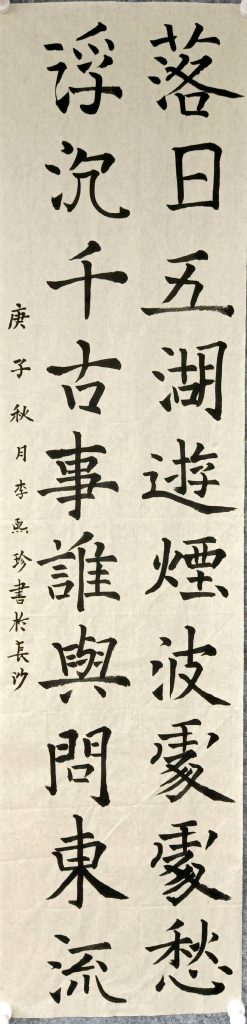 落日五湖遊煙波處處愁
浮沉千古事誰與問東流
庚子秋月李熙珍書於長沙